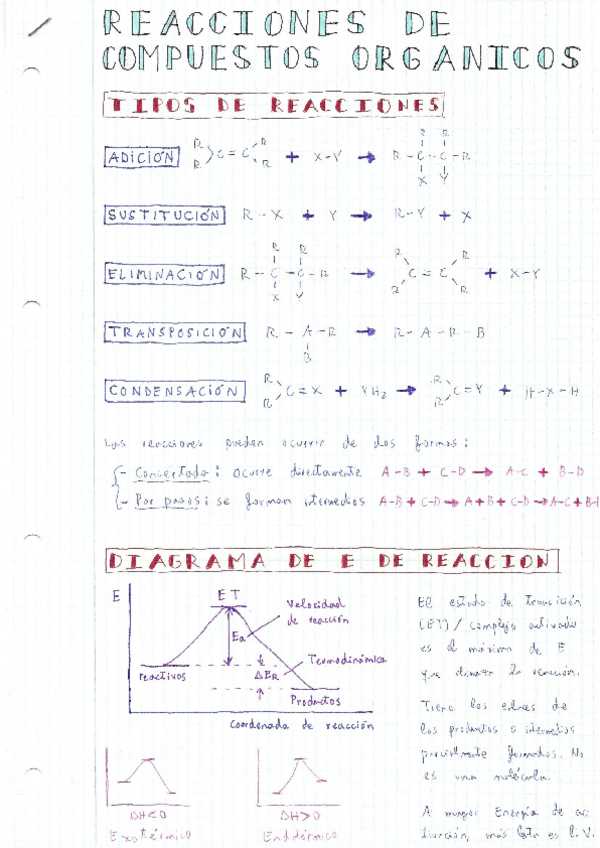 REACCIONES DE
COMPUESTOS ORGANICOS
TIPOS DE REACCIONES
ADICIÓN R R C = C R R + X-Y → R R R - C - C - R X Y
SUSTITUCIÓN R - X + Y → R-Y + X
ELIMINACIÓN R R R - C - C - R X Y → R R C = C R R + X-Y
TRANSPOSICIÓN R - A - R B → R - A - R - B
CONDENSACIÓN R R C = X + YH2 → R R C = Y + H-X-H
Las reacciones pueden ocurrir de dos formas:
- Concertada: ocurre directamente A-B + C-D → A-C + B-D
- Por pasos: se forman intermedios A-B + C-D → A + B + C-D → A-C + B-
DIAGRAMA DE E DE REACCION
E
ET
Velocidad
de reacción
Ea
Termodinámica
reactivos
ΔER
Productos
Coordenada de reacción
El estado de transición
(ET) / complejo activado
es el máximo de E
que la reacción.
Tiene los de
los productos o intermedios
parcialmente formados. No
es una molécula.
A mayor Energía de ac
tivación, más es la V.
ΔH<0
Exotérmico
ΔH>0
Endotérmico